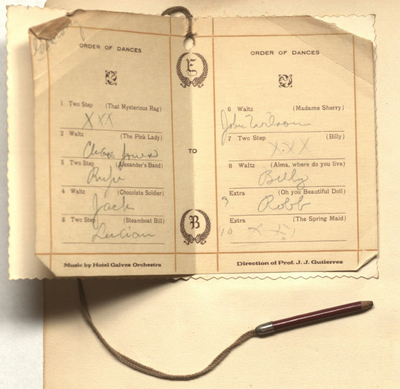 ORDER OF DANCES
1 Two Step (That Mysterious Rag)
XXX
2 Waltz (The Pink Lady)
Jones
3 Two Step (Alexander's Band)
Rufe
4 Waltz (Chocolate Soldier)
Jack
5 Two Step (Steamboat Bill)
Lucian
Music by Hotel Galvez Orchestra
E
TO
B
ORDER OF DANCES
6 Waltz (Madame Sherry)
John Wilson
7 Two Step (Billy)
XXX
8 Waltz (Alma, where do you live)
Billy
Extra (Oh you Beautiful Doll)
9 Robb
Extra (The Spring Maid)
10 XXX
Direction of Prof. J. J. Gutierres